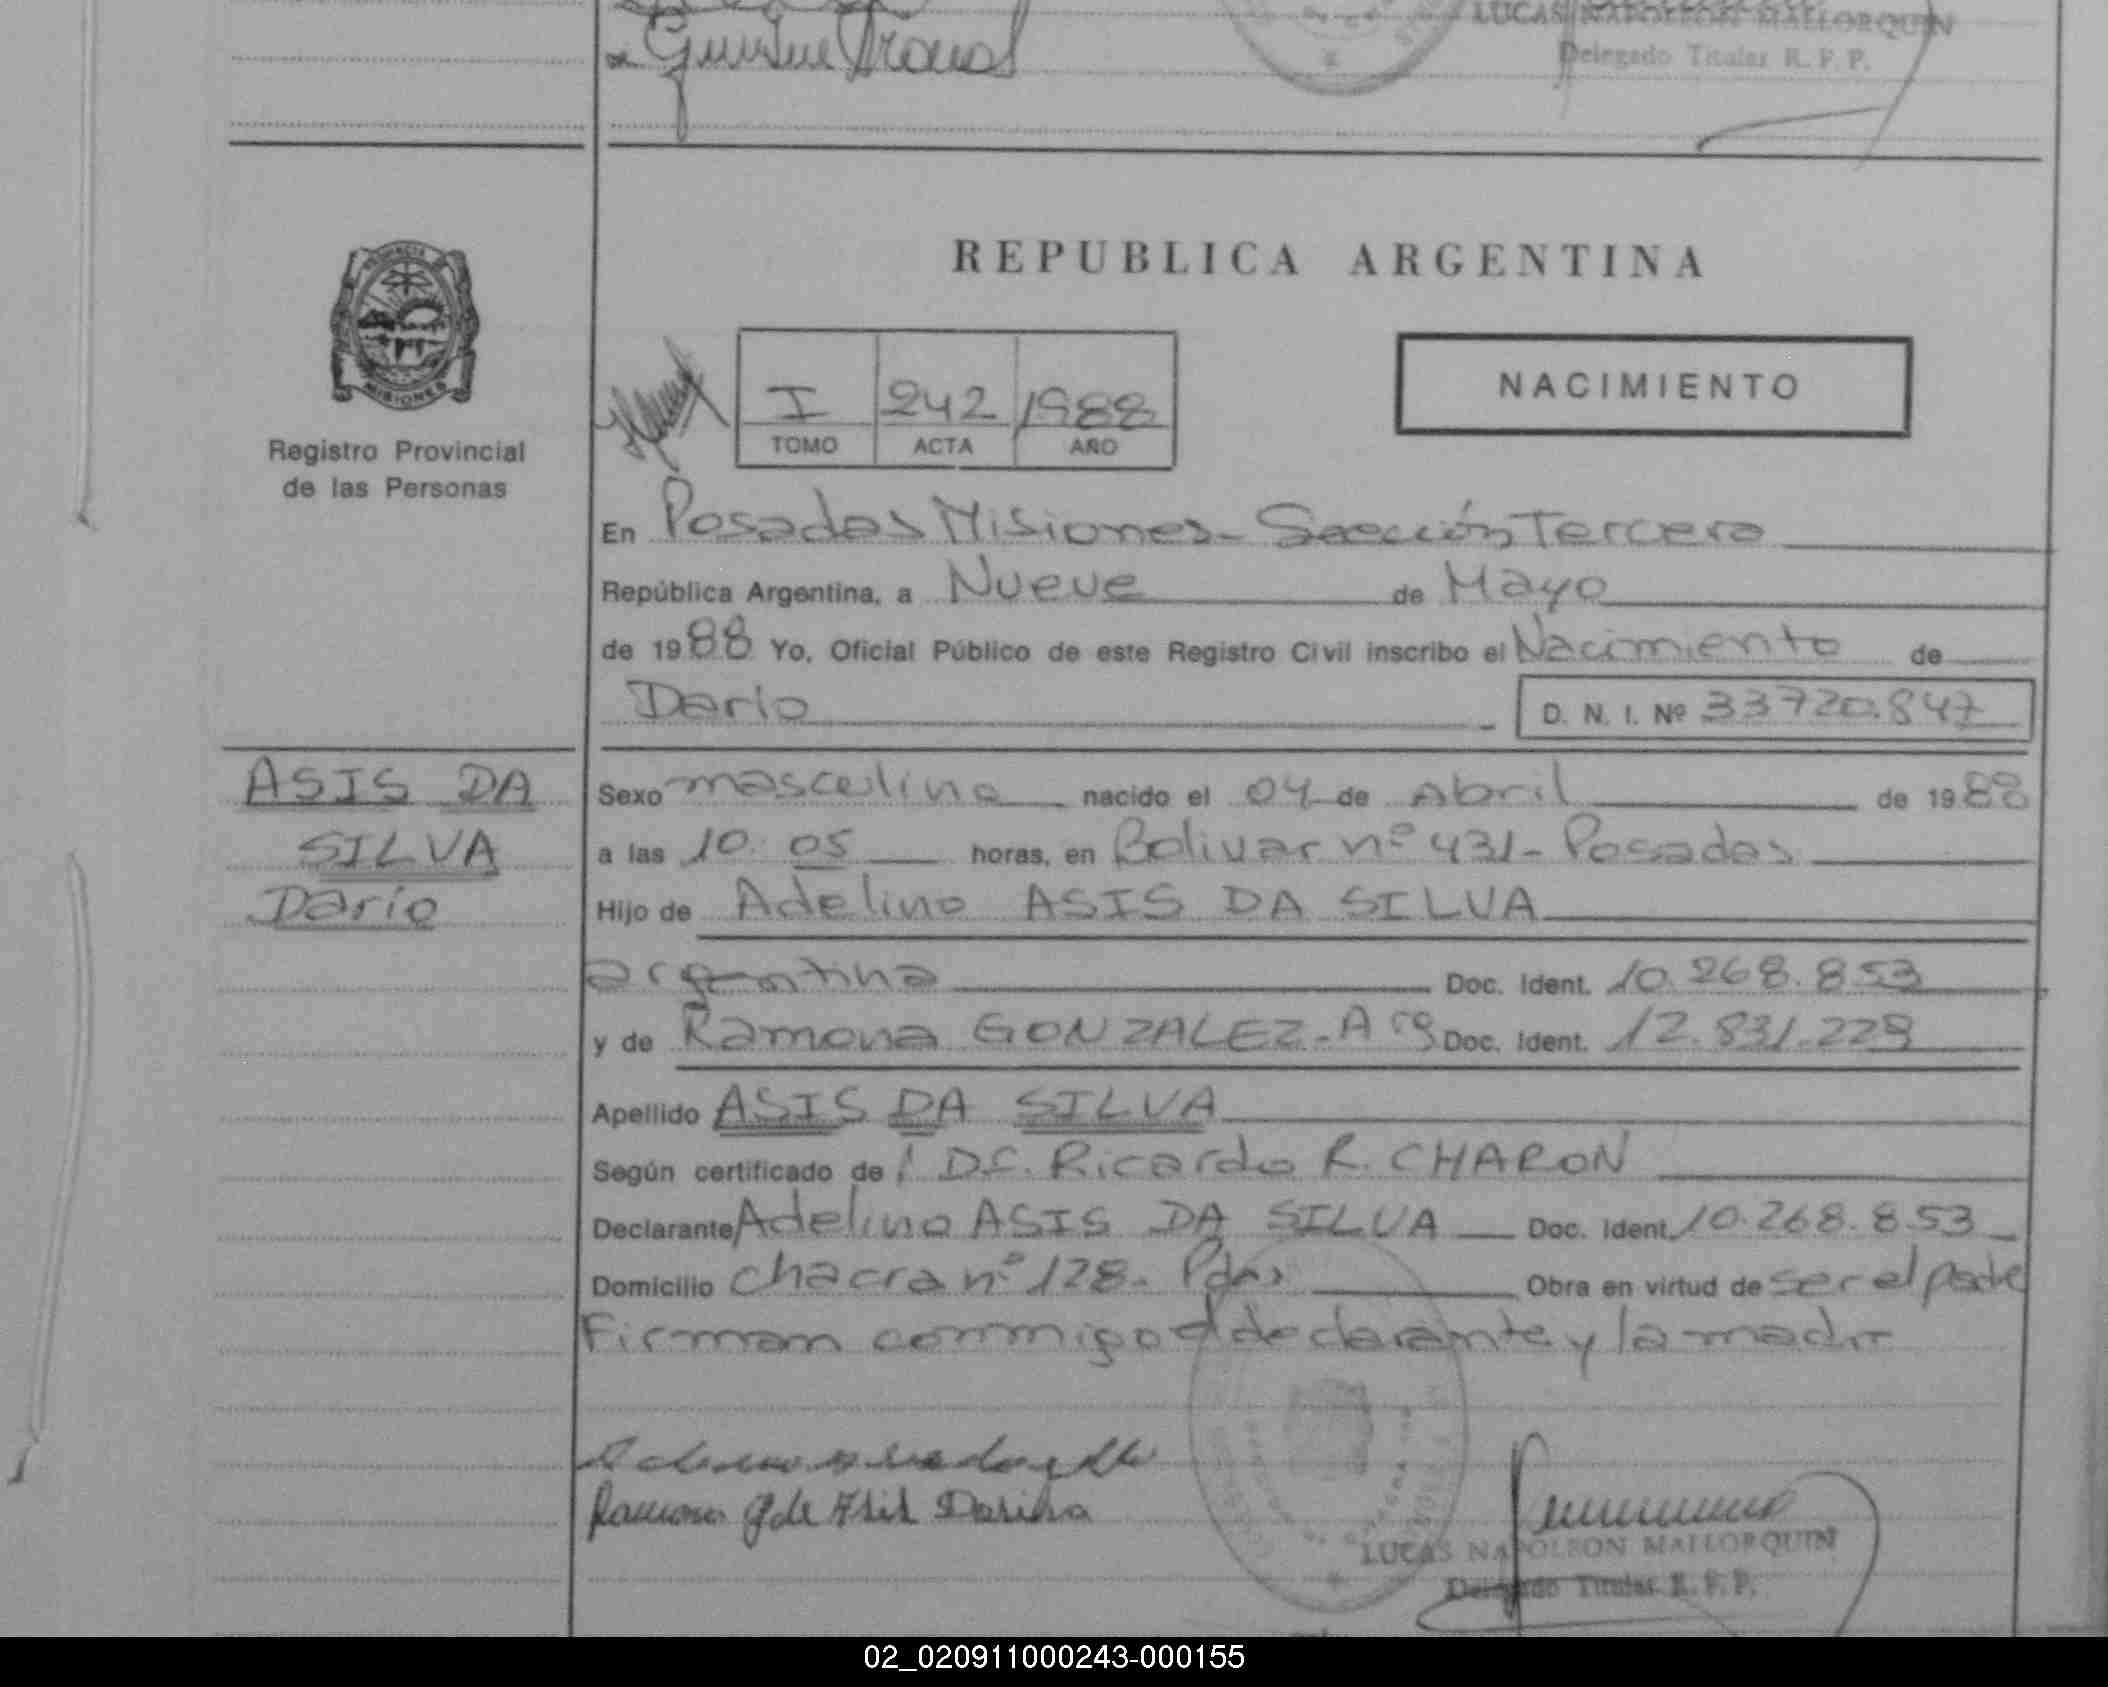 LUCAS NAPOLEON MALLORQUIN
Delegado Titular R. P. P.
REPUBLICA ARGENTINA
PROVINCIA
MISIONES
Registro Provincial
de las Personas
I 242 1988
TOMO ACTA AÑO
NACIMIENTO
En Posadas Misiones - Sección Tercera
República Argentina, a Nueve de Mayo
de 1988 Yo, Oficial Público de este Registro Civil inscribo el Nacimiento de
Dario D. N. I. Nº 33720.847
ASIS DA
SILVA
Darío
Sexo masculino nacido el 04 de Abril de 1988
a las 10.05 horas, en Bolivar nº 431 - Posadas
Hijo de Adelino ASIS DA SILVA
argentina Doc. Ident. 10.268.853
y de Ramona GONZALEZ - Arg Doc. Ident. 12.831.229
Apellido ASIS DA SILVA
Según certificado de / Dr. Ricardo R. CHARON
Declarante Adelino ASIS DA SILVA Doc. Ident. 10.268.853
Domicilio chacra nº 128 - Pdas Obra en virtud de ser el padre
Firman conmigo el declarante y la madre
Ramona G de Asis Dasilva
LUCAS NAPOLEON MALLORQUIN
Delegado Titular R. P. P.
02_020911000243-000155